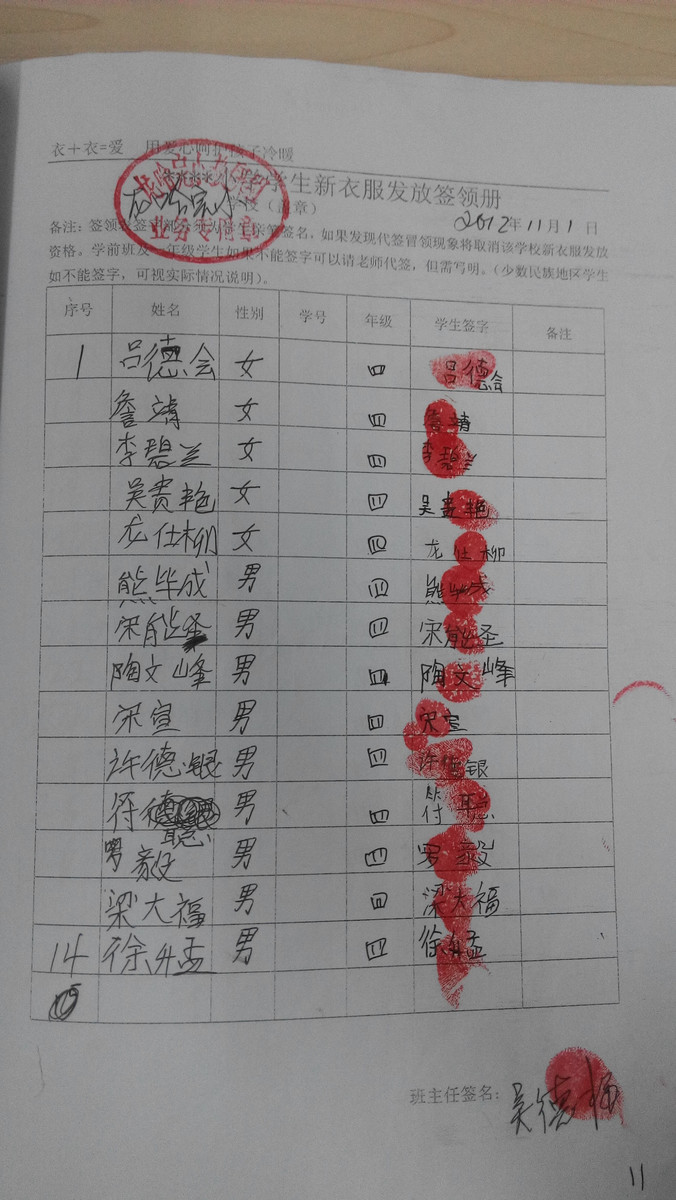 衣+衣=爱 用爱心向护孩子冷暖
学生新衣服发放签领册
学校（盖章） 2012年11月1日
业务专用章
备注：签领 签 签名。如果发现代签冒领现象将取消该学校新衣服发放
资格。学前班及一年级学生如果不能签字可以请老师代签，但需写明。（少数民族地区学生
如不能签字，可视实际情况说明）。
序号 姓名 性别 学号 年级 学生签字 备注
1 吕德会 女 四 吕德会
詹靖 女 四 詹靖
李碧兰 女 四 李碧兰
吴贵艳 女 四 吴贵艳
龙仕柳 女 四 龙仕柳
熊毕成 男 四 熊毕成
宋能圣 男 四 宋能圣
陶文峰 男 四 陶文峰
宋宣 男 四 宋宣
许德银 男 四 许德银
符聪 男 四 符聪
罗毅 男 四 罗毅
梁大福 男 四 梁大福
14 徐 孟 男 四 徐 孟
班主任签名： 吴德
11